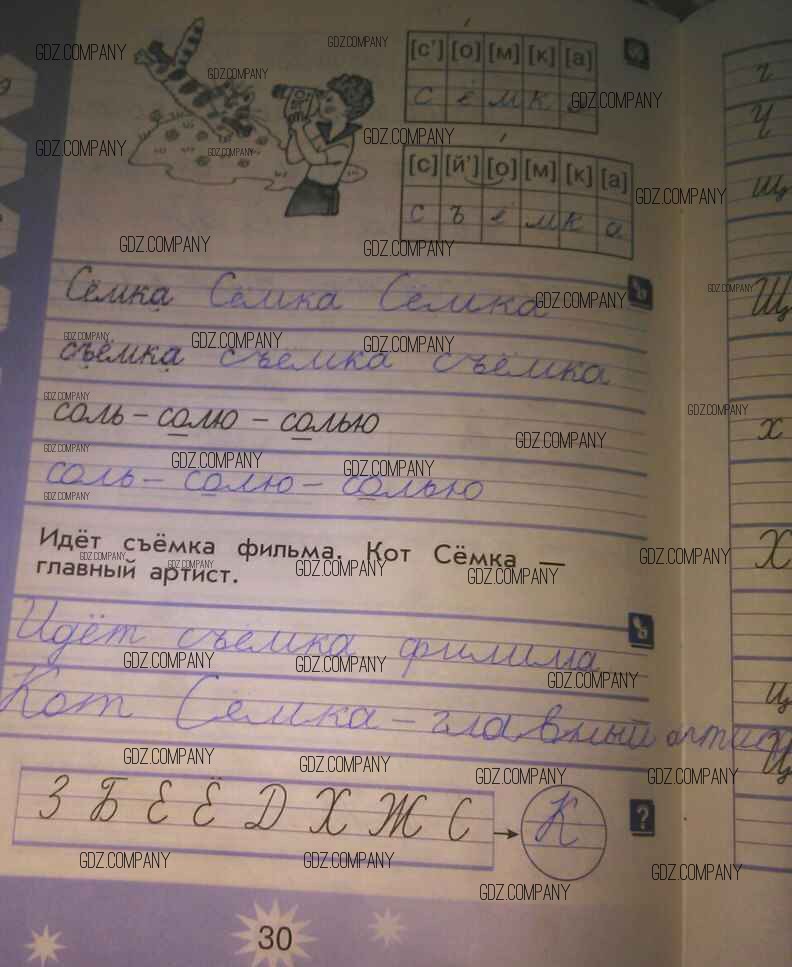 [с'] [о] [м] [к] [а]
с ё м к а
[с] [й'] [о] [м] [к] [а]
с ъ ё м к а
Сёмка Сёмка Сёмка
съёмка съёмка съёмка
соль – солю – солью
соль – солю – солью
Идёт съёмка фильма. Кот Сёмка —
главный артист.
Идёт съёмка фильма
Кот Сёмка – главный артис
З Б Е Ё Д Х Ж С К
?
30
ч
Ч
щ
Щ
х
Х
ц
Ц
GDZ.COMPANY